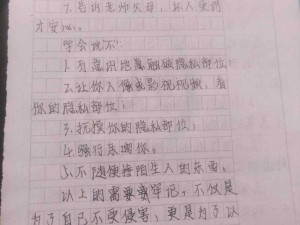 7.告诉老师父母，坏人受罚
才安心。
学会说"不"
1.有意识地触碰隐私部位
2.让你入偶或影视视频，看
你的隐私部位；
3.抚摸你的隐私部位；
4.强行亲吻你。
5.不随便接陌生人的东西。
以上的需要牢记。不仅是
为了自己不受侵害，更是为了以